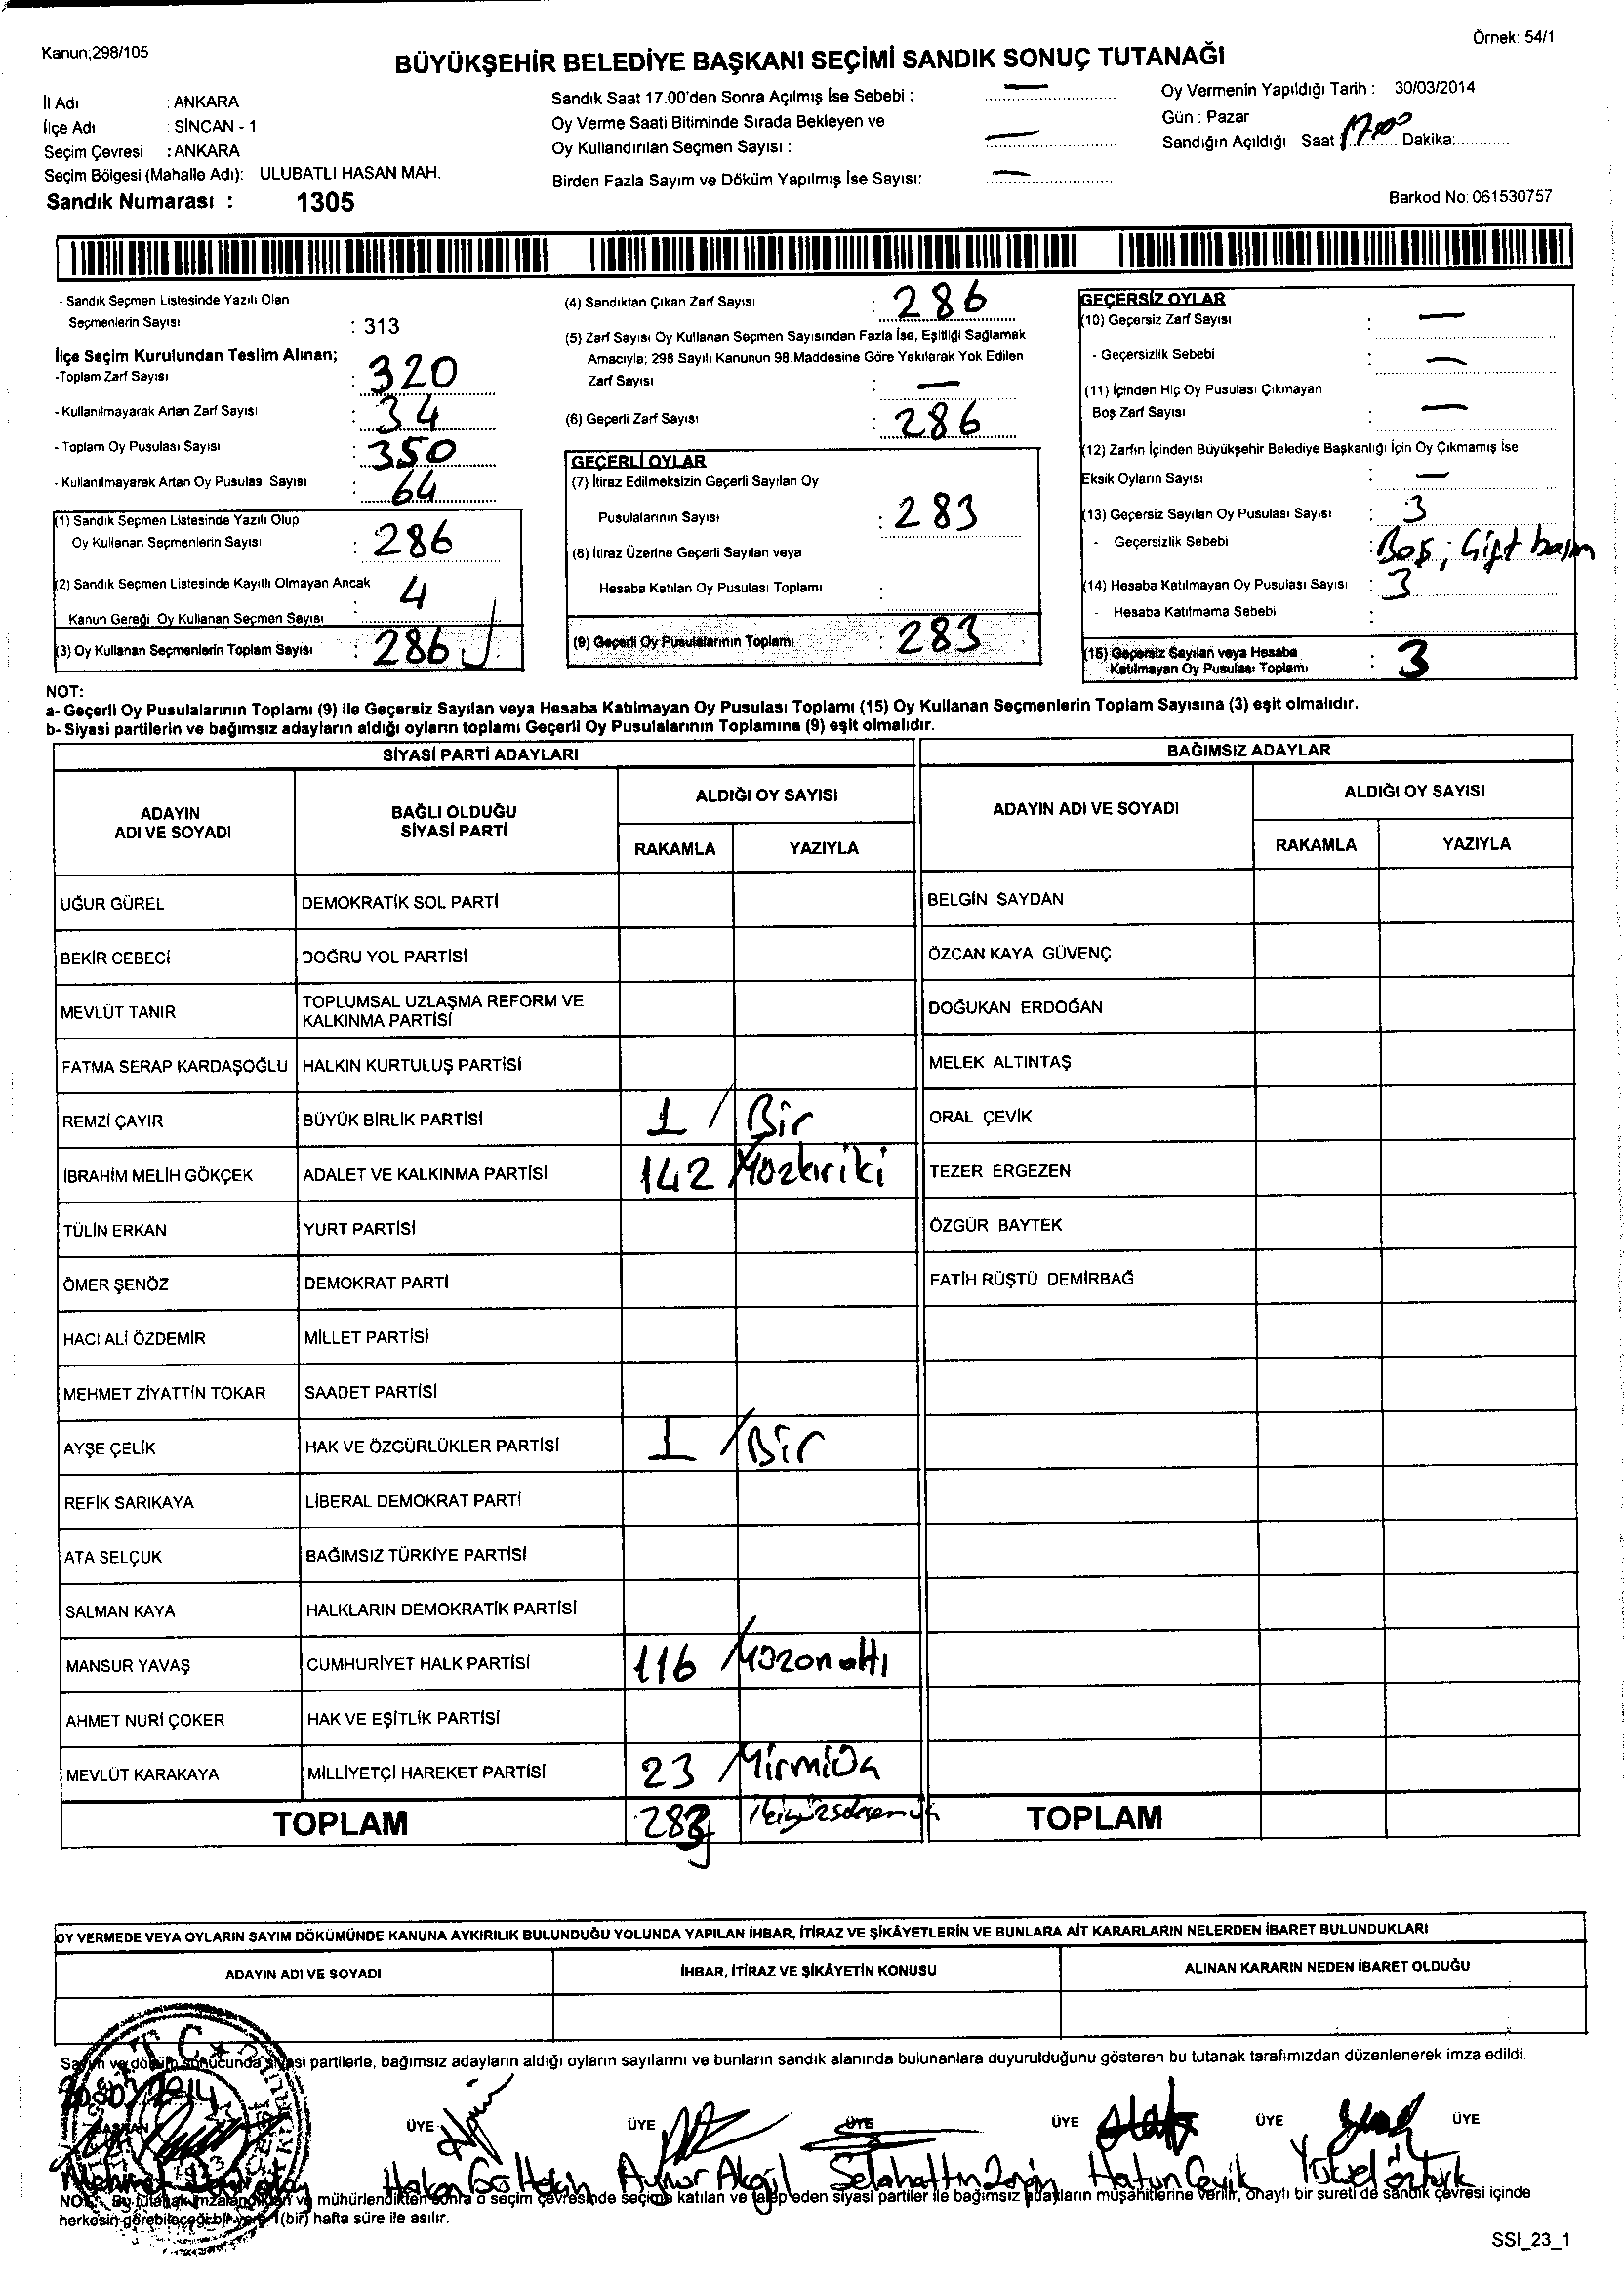 Kanun;298/105
Örnek: 54/1
BÜYÜKŞEHİR BELEDİYE BAŞKANI SEÇİMİ SANDIK SONUÇ TUTANAĞI
İl Adı : ANKARA
İlçe Adı : SİNCAN - 1
Seçim Çevresi : ANKARA
Seçim Bölgesi (Mahalle Adı): ULUBATLI HASAN MAH.
Sandık Numarası : 1305
Sandık Saat 17.00'den Sonra Açılmış İse Sebebi : —
Oy Verme Saati Bitiminde Sırada Bekleyen ve
Oy Kullandırılan Seçmen Sayısı : —
Birden Fazla Sayım ve Döküm Yapılmış İse Sayısı: —
Oy Vermenin Yapıldığı Tarih : 30/03/2014
Gün : Pazar
Sandığın Açıldığı Saat 17.00 Dakika:
Barkod No: 061530757
- Sandık Seçmen Listesinde Yazılı Olan
Seçmenlerin Sayısı : 313
İlçe Seçim Kurulundan Teslim Alınan;
-Toplam Zarf Sayısı : 320
- Kullanılmayarak Artan Zarf Sayısı : 34
- Toplam Oy Pusulası Sayısı : 350
- Kullanılmayarak Artan Oy Pusulası Sayısı : 64
(1) Sandık Seçmen Listesinde Yazılı Olup
Oy Kullanan Seçmenlerin Sayısı : 286
(2) Sandık Seçmen Listesinde Kayıtlı Olmayan Ancak
Kanun Gereği Oy Kullanan Seçmen Sayısı : 4
(3) Oy Kullanan Seçmenlerin Toplam Sayısı : 286
(4) Sandıktan Çıkan Zarf Sayısı : 286
(5) Zarf Sayısı Oy Kullanan Seçmen Sayısından Fazla İse, Eşitliği Sağlamak
Amacıyla; 298 Sayılı Kanunun 98.Maddesine Göre Yakılarak Yok Edilen
Zarf Sayısı : —
(6) Geçerli Zarf Sayısı : 286
GEÇERLİ OYLAR
(7) İtiraz Edilmeksizin Geçerli Sayılan Oy
Pusulalarının Sayısı : 283
(8) İtiraz Üzerine Geçerli Sayılan veya
Hesaba Katılan Oy Pusulası Toplamı :
(9) Geçerli Oy Pusulalarının Toplamı : 283
GEÇERSİZ OYLAR
(10) Geçersiz Zarf Sayısı : —
- Geçersizlik Sebebi : —
(11) İçinden Hiç Oy Pusulası Çıkmayan
Boş Zarf Sayısı : —
(12) Zarfın İçinden Büyükşehir Belediye Başkanlığı İçin Oy Çıkmamış İse
Eksik Oyların Sayısı : —
(13) Geçersiz Sayılan Oy Pusulası Sayısı : 3
- Geçersizlik Sebebi : Boş, Çift basım
(14) Hesaba Katılmayan Oy Pusulası Sayısı : 3
- Hesaba Katılmama Sebebi :
(15) Geçersiz Sayılan veya Hesaba
Katılmayan Oy Pusulası Toplamı : 3
NOT:
a- Geçerli Oy Pusulalarının Toplamı (9) ile Geçersiz Sayılan veya Hesaba Katılmayan Oy Pusulası Toplamı (15) Oy Kullanan Seçmenlerin Toplam Sayısına (3) eşit olmalıdır.
b- Siyasi partilerin ve bağımsız adayların aldığı oyların toplamı Geçerli Oy Pusulalarının Toplamına (9) eşit olmalıdır.
SİYASİ PARTİ ADAYLARI
BAĞIMSIZ ADAYLAR
ADAYIN
ADI VE SOYADI
BAĞLI OLDUĞU
SİYASİ PARTİ
ALDIĞI OY SAYISI
RAKAMLA YAZIYLA
ADAYIN ADI VE SOYADI
ALDIĞI OY SAYISI
RAKAMLA YAZIYLA
UĞUR GÜREL DEMOKRATİK SOL PARTİ BELGİN SAYDAN
BEKİR CEBECİ DOĞRU YOL PARTİSİ ÖZCAN KAYA GÜVENÇ
MEVLÜT TANIR TOPLUMSAL UZLAŞMA REFORM VE
KALKINMA PARTİSİ DOĞUKAN ERDOĞAN
FATMA SERAP KARDAŞOĞLU HALKIN KURTULUŞ PARTİSİ MELEK ALTINTAŞ
REMZİ ÇAYIR BÜYÜK BİRLİK PARTİSİ 1 / Bir ORAL ÇEVİK
İBRAHİM MELİH GÖKÇEK ADALET VE KALKINMA PARTİSİ 142 / Yüzkıriki TEZER ERGEZEN
TÜLİN ERKAN YURT PARTİSİ ÖZGÜR BAYTEK
ÖMER ŞENÖZ DEMOKRAT PARTİ FATİH RÜŞTÜ DEMİRBAĞ
HACI ALİ ÖZDEMİR MİLLET PARTİSİ
MEHMET ZİYATTİN TOKAR SAADET PARTİSİ
AYŞE ÇELİK HAK VE ÖZGÜRLÜKLER PARTİSİ 1 / Bir
REFİK SARIKAYA LİBERAL DEMOKRAT PARTİ
ATA SELÇUK BAĞIMSIZ TÜRKİYE PARTİSİ
SALMAN KAYA HALKLARIN DEMOKRATİK PARTİSİ
MANSUR YAVAŞ CUMHURİYET HALK PARTİSİ 116 / Yüzonaltı
AHMET NURİ ÇOKER HAK VE EŞİTLİK PARTİSİ
MEVLÜT KARAKAYA MİLLİYETÇİ HAREKET PARTİSİ 23 / YirmiÜç
TOPLAM 283 TOPLAM
OY VERMEDE VEYA OYLARIN SAYIM DÖKÜMÜNDE KANUNA AYKIRILIK BULUNDUĞU YOLUNDA YAPILAN İHBAR, İTİRAZ VE ŞİKÂYETLERİN VE BUNLARA AİT KARARLARIN NELERDEN İBARET BULUNDUKLARI
ADAYIN ADI VE SOYADI İHBAR, İTİRAZ VE ŞİKÂYETİN KONUSU ALINAN KARARIN NEDEN İBARET OLDUĞU
Sayım ve döküm sonucunda siyasi partilerle, bağımsız adayların aldığı oyların sayılarını ve bunların sandık alanında bulunanlara duyurulduğunu gösteren bu tutanak tarafımızdan düzenlenerek imza edildi.
BAŞKAN ÜYE ÜYE ÜYE ÜYE ÜYE ÜYE
Hakan Aynur Akgül Selahattin Hatun Çevik Yüksel Öztürk
NOT: Bu tutanak imzalandıktan ve mühürlendikten sonra o seçim çevresinde seçime katılan ve talep eden siyasi partiler ile bağımsız adayların müşahitlerine verilir, onaylı bir sureti de sandık çevresi içinde
herkesin görebileceği bir yere 1(bir) hafta süre ile asılır.
SSI_23_1